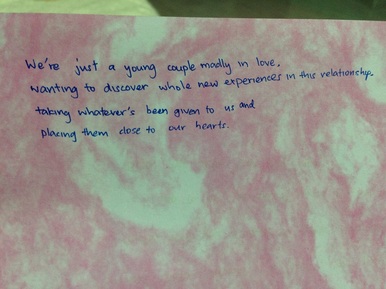 We're just a young couple madly in love,
wanting to discover whole new experiences in this relationship,
taking whatever's been given to us and
placing them close to our hearts.